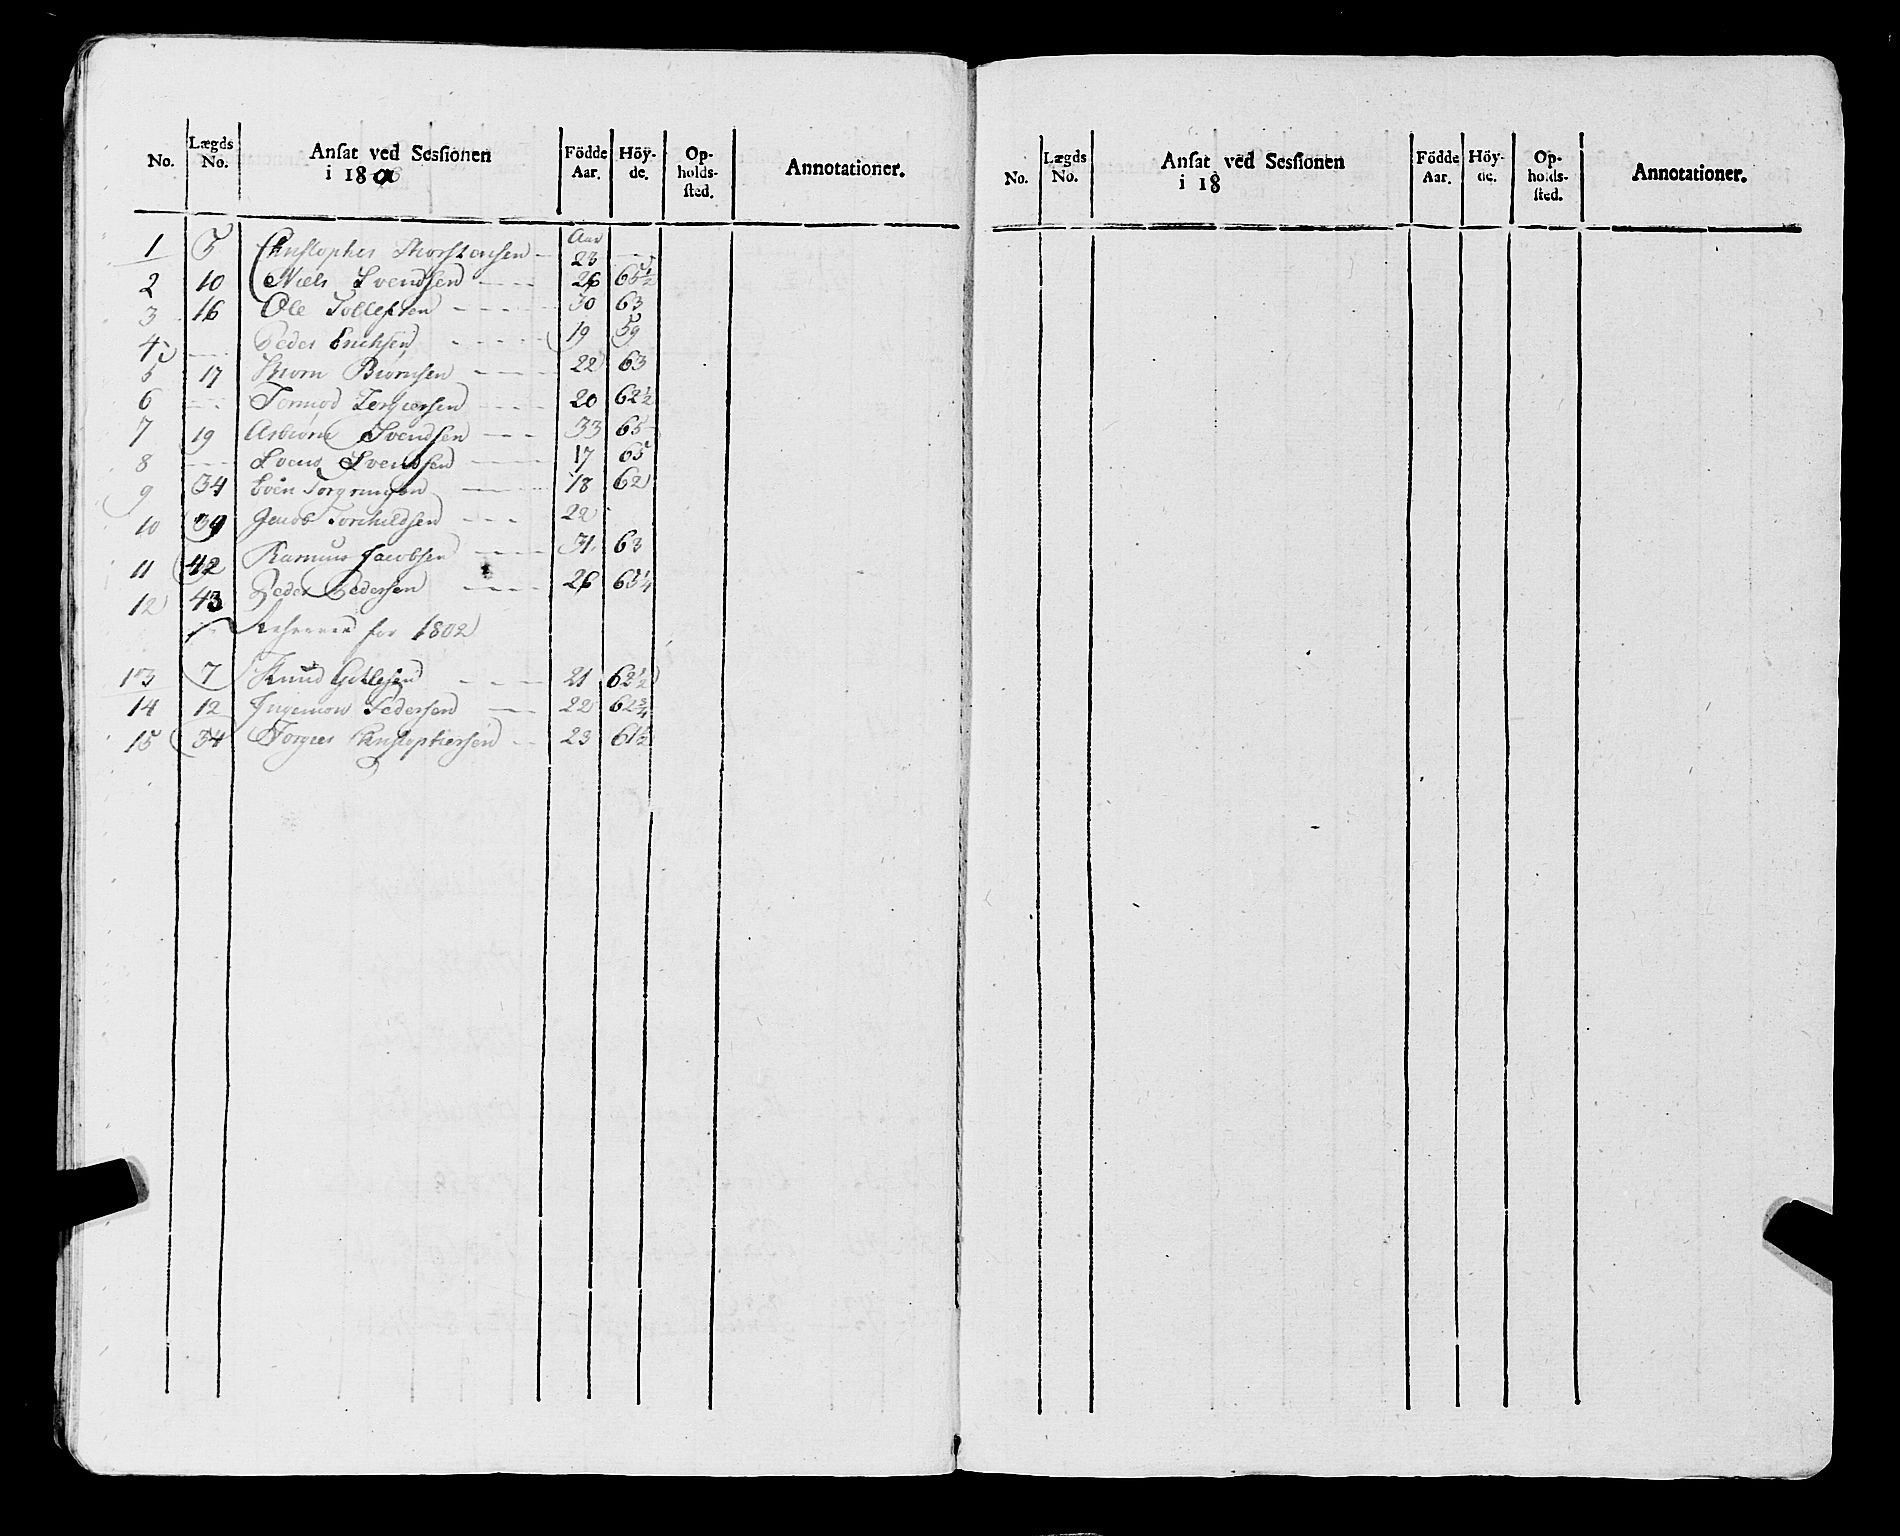 No. Lægds No. Ansat ved Sessionen i 180 Födde Aar. Höy-de. Op-holds-sted. Annotationer.
Aar
1 5 Christopher Thorstensen - 23
2 10 Niels Svendsen - - - - 26 65 1/2
3 16 Ole Tollefsen - - - - 30 63
4 - - Peder Erichsen - - - - 19 59
5 17 Biørn Biørnsen - - - - 22 63
6 - - Tormod Tergiersen - - - - 20 62 1/2
7 19 Asbiørn Svendsen - - - 33 65
8 - - Svend Svendsen - - - 17 65
9 34 Even - - - 18 62
10 39 Jacob Torchildsen - - - 22
11 42 Rasmus Jacobsen - - - - 31 63
12 43 Peder Pedersen - - - - 26 63 1/4
Reserver for 1802
13 7 Knud - - - 21 62 1/2
14 12 Pedersen - - 22 62 3/4
15 34 Torgies Christophersen - - 23 61 1/2
No. Lægds No. Ansat ved Sessionen i 18 Födde Aar. Höy-de. Op-holds-sted. Annotationer.